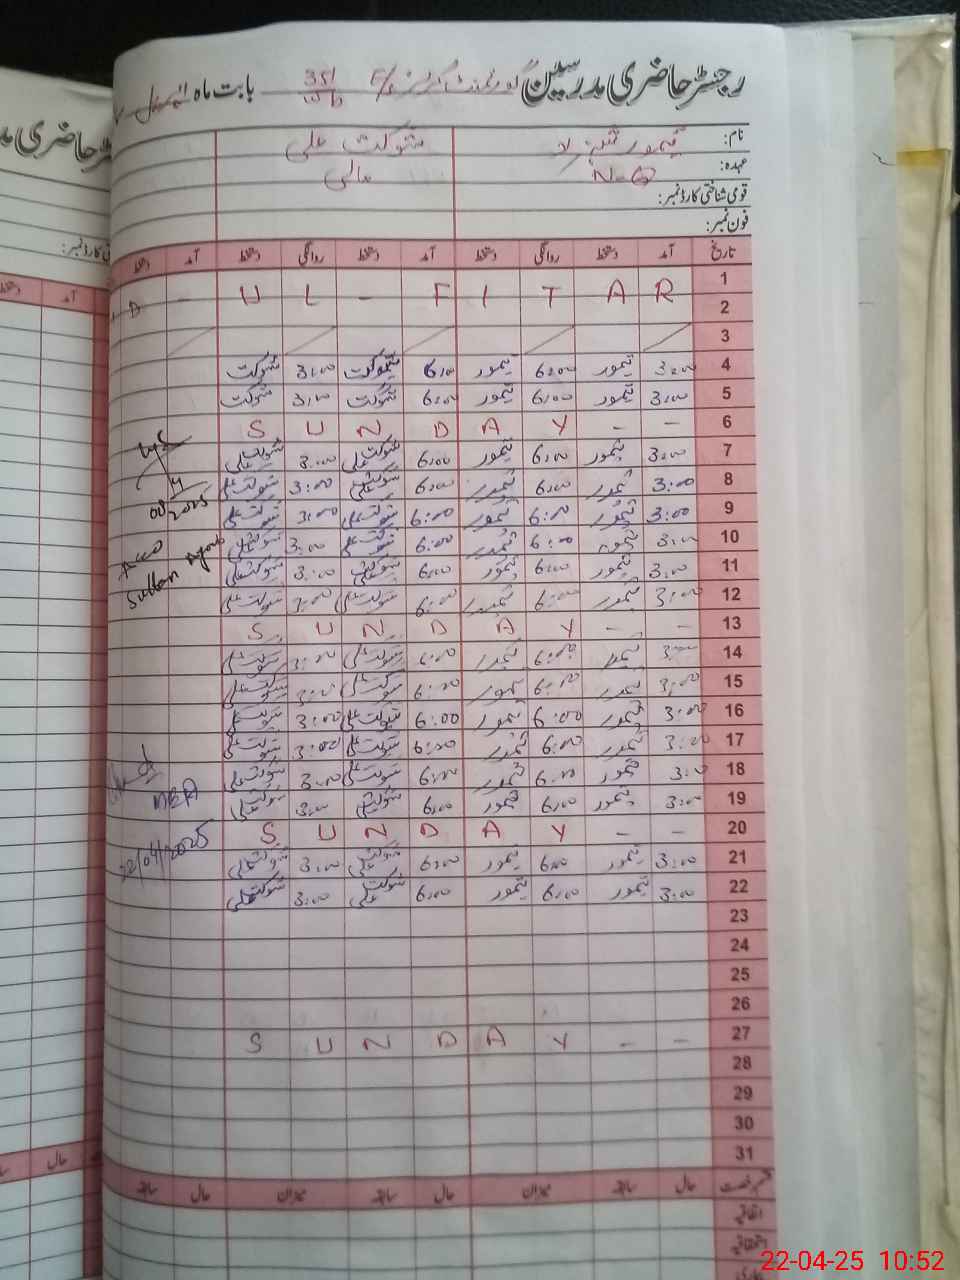 رجسٹر حاضری مدرسین گورنمنٹ گرلز F/S 351 WB بابت ماہ اپریل
نام: تیمور شہزاد شوکت علی
عہدہ: مالی
قومی شناختی کارڈ نمبر:
فون نمبر:
تاریخ آمد دستخط روانگی دستخط آمد دستخط روانگی دستخط آمد دستخط
1
R A T I F - L U - D
2
3
4 3:00 تیمور 6:00 تیمور 6:00 شوکت 3:00 شوکت
5 3:00 تیمور 6:00 تیمور 6:00 شوکت 3:00 شوکت
6 S U N D A Y - -
7 3:00 تیمور 6:00 تیمور 6:00 شوکت علی 3:00 شوکت علی
8 3:00 تیمور 6:00 تیمور 6:00 شوکت علی 3:00 شوکت علی
9 3:00 تیمور 6:00 تیمور 6:00 شوکت علی 3:00 شوکت علی
10 3:00 تیمور 6:00 تیمور 6:00 شوکت علی 3:00 شوکت علی
11 3:00 تیمور 6:00 تیمور 6:00 شوکت علی 3:00 شوکت علی
12 3:00 تیمور 6:00 تیمور 6:00 شوکت علی 3:00 شوکت علی
13 S U N D A Y - -
14 3:00 تیمور 6:00 تیمور 6:00 شوکت علی 3:00 شوکت علی
15 3:00 تیمور 6:00 تیمور 6:00 شوکت علی 3:00 شوکت علی
16 3:00 تیمور 6:00 تیمور 6:00 شوکت علی 3:00 شوکت علی
17 3:00 تیمور 6:00 تیمور 6:00 شوکت علی 3:00 شوکت علی
18 3:00 تیمور 6:00 تیمور 6:00 شوکت علی 3:00 شوکت علی
19 3:00 تیمور 6:00 تیمور 6:00 شوکت علی 3:00 شوکت علی
20 S U N D A Y - -
21 3:00 تیمور 6:00 تیمور 6:00 شوکت علی 3:00 شوکت علی
22 3:00 تیمور 6:00 تیمور 6:00 شوکت علی 3:00 شوکت علی
23
24
25
26
27 S U N D A Y - -
28
29
30
31
قسم رخصت حال سابقہ میزان حال سابقہ میزان حال سابقہ
اتفاقیہ
استحقاقیہ
2025
Sultan Ayoub
MEA
22/04/2025
22-04-25 10:52